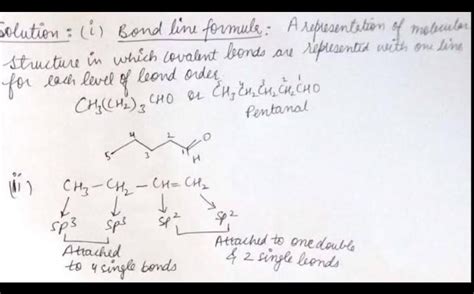 Solution : (i) Bond line formula : A representation of molecular
structure in which covalent bonds are represented with one line
for each level of bond order.
CH3(CH2)3 CHO or CH3CH2CH2CH2CHO
5 4 3 2 1
Pentanal
5 4 3 2 1 O H
(ii) CH3 – CH2 – CH = CH2
sp3 sp3 sp2 sp2
Attached to 4 single bonds
Attached to one double & 2 single bonds